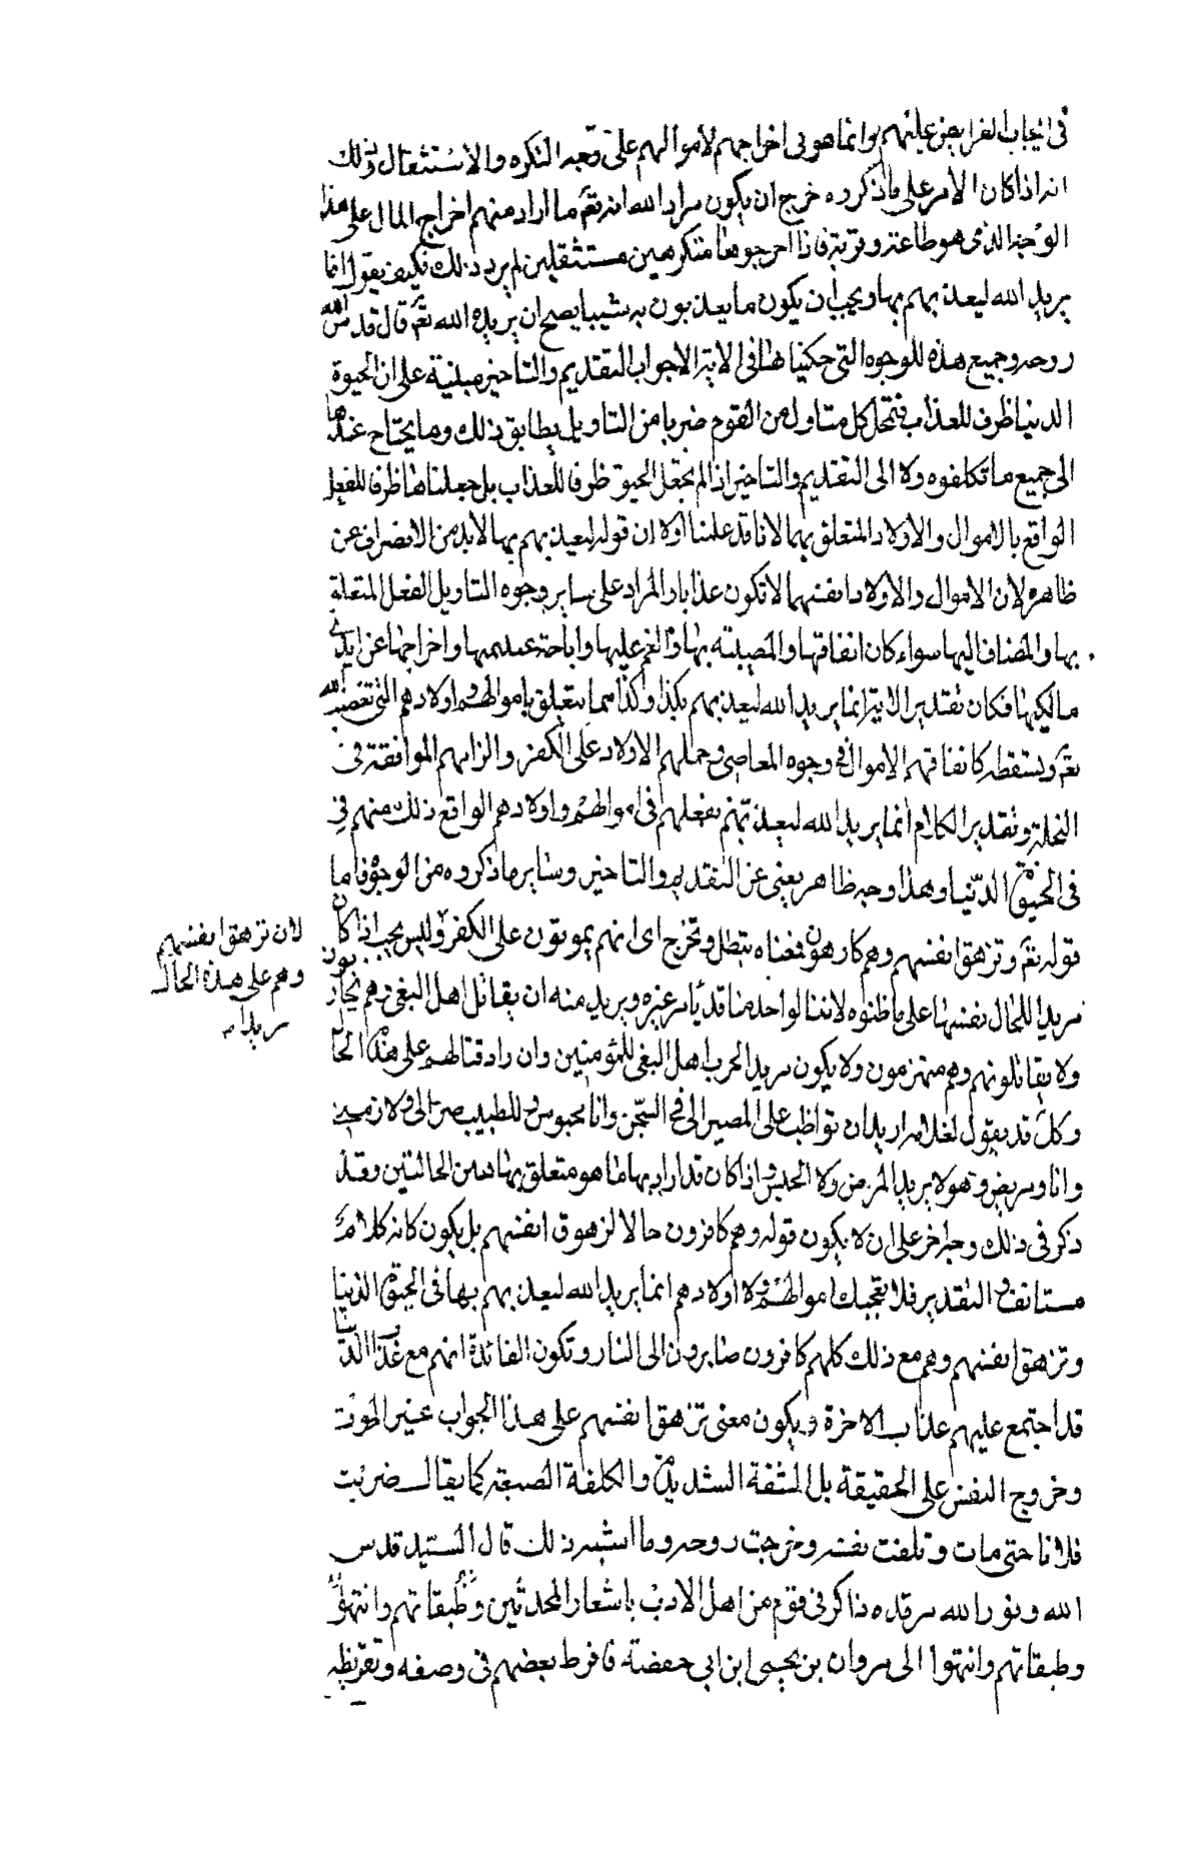 في ايجاب الفرايض عليهم وانما هو في اخراجهم لاموالهم على وجه التكره والاستثقال وذلك
انه اذا كان الامر على ما ذكروه خرج ان يكون مراد الله انه تعم ما اراد منهم اخراج المال على هذا
الوجه الذي هو طاعته وقربة فاذا اخرجوها متكرهين مستثقلين لم يرد ذلك فكيف يقول انما
يريد الله ليعذبهم بها ويجب ان يكون ما يعذبون به شيئا يصح ان يريده الله تعم قال قدس الله
روحه وجميع هذه الوجوه التي حكيناها في الاية الا جواب التقديم والتاخير مبنية على ان الحيوة
الدنيا ظرف للعذاب فتمحل كل متاول من القوم ضربا من التاويل يطابق ذلك وما يحتاج عندها
الى جميع ما تكلفوه ولا الى التقديم والتاخير اذا لم تجعل الحيوة ظرفا للعذاب بل جعلناها ظرفا للفعل
الواقع بالاموال والاولاد المتعلق بهما لانا قد علمنا اولا ان قوله ليعذبهم بها لابد من الانصراف عن
ظاهره لان الاموال والاولاد انفسهما لا تكون عذابا والمراد على ساير وجوه التاويل الفعل المتعلق
بها والمضاف اليها سواء كان انفاقها والمصيبة بها والغم عليها واباحة غنيمها واخراجها عن ايدي
مالكيها فكان تقدير الاية انما يريد الله ليعذبهم بكذا وكذا مما يتعلق باموالهم واولادهم التي تغضب الله
تعم ويسخطه كانفاقهم الاموال في وجوه المعاصي وحملهم الاولاد على الكفر والزامهم الموافقة في
النحلة وتقدير الكلام انما يريد الله ليعذبهم بفعلهم في اموالهم واولادهم الواقع ذلك منهم في
في الحيوة الدنيا وهذا وجه ظاهر يغني عن التقديم والتاخير وساير ما ذكروه من الوجوه فاما
قوله تعم وتزهق انفسهم وهم كارهون فمعناه تبطل وتخرج اي انهم يموتون على الكفر وليس يجب اذا كان
مريدا للحال نفسها على ما ظنوه لان الواحد منا قد يامر غيره ويريد منه ان يقاتل اهل البغي وهم محاربون
ولا يقاتلونهم وهم منهزمون ولا يكون مريدا لحرب اهل البغي للمؤمنين وان اراد قتالهم على هذا الحال
وكذلك قد يقول لغلامه اريد ان تواظب على المصير الي في السجن وانا محبوس وللطبيب صر الي ولازمني
وانا مريض وهو لا يريد المرض ولا الحبس واذا كان قد اراد بهما ما هو متعلق بهاتين الحالتين وقد
ذكر في ذلك وجه اخر على ان لا يكون قوله وهم كافرون حالا لزهوق انفسهم بل يكون كانه كلام
مستانف والتقدير فلا تعجبك اموالهم ولا اولادهم انما يريد الله ليعذبهم بها في الحيوة الدنيا
وتزهق انفسهم وهم مع ذلك كلهم كافرون صايرون الى النار وتكون الفائدة انهم مع عذاب الدنيا
قد اجتمع عليهم عذاب الاخرة ويكون معنى تزهق انفسهم على هذا الجواب غير الموت
وخروج النفس على الحقيقة بل المشقة الشديدة والكلفة الصعبة كما يقال ضربت
فلانا حتى مات وتلفت نفسه وخرجت روحه وما اشبه ذلك قال السيد قدس
الله ونور الله مرقده ذاكرني قوم من اهل الادب باشعار المحدثين وطبقاتهم وانتهوا
وطبقاتهم وانتهوا الى مروان بن يحيى ابن ابي حفصة فافرط بعضهم في وصفه وتقريظه
لان تزهق انفسهم
وهم على هذه الحال
مريدا